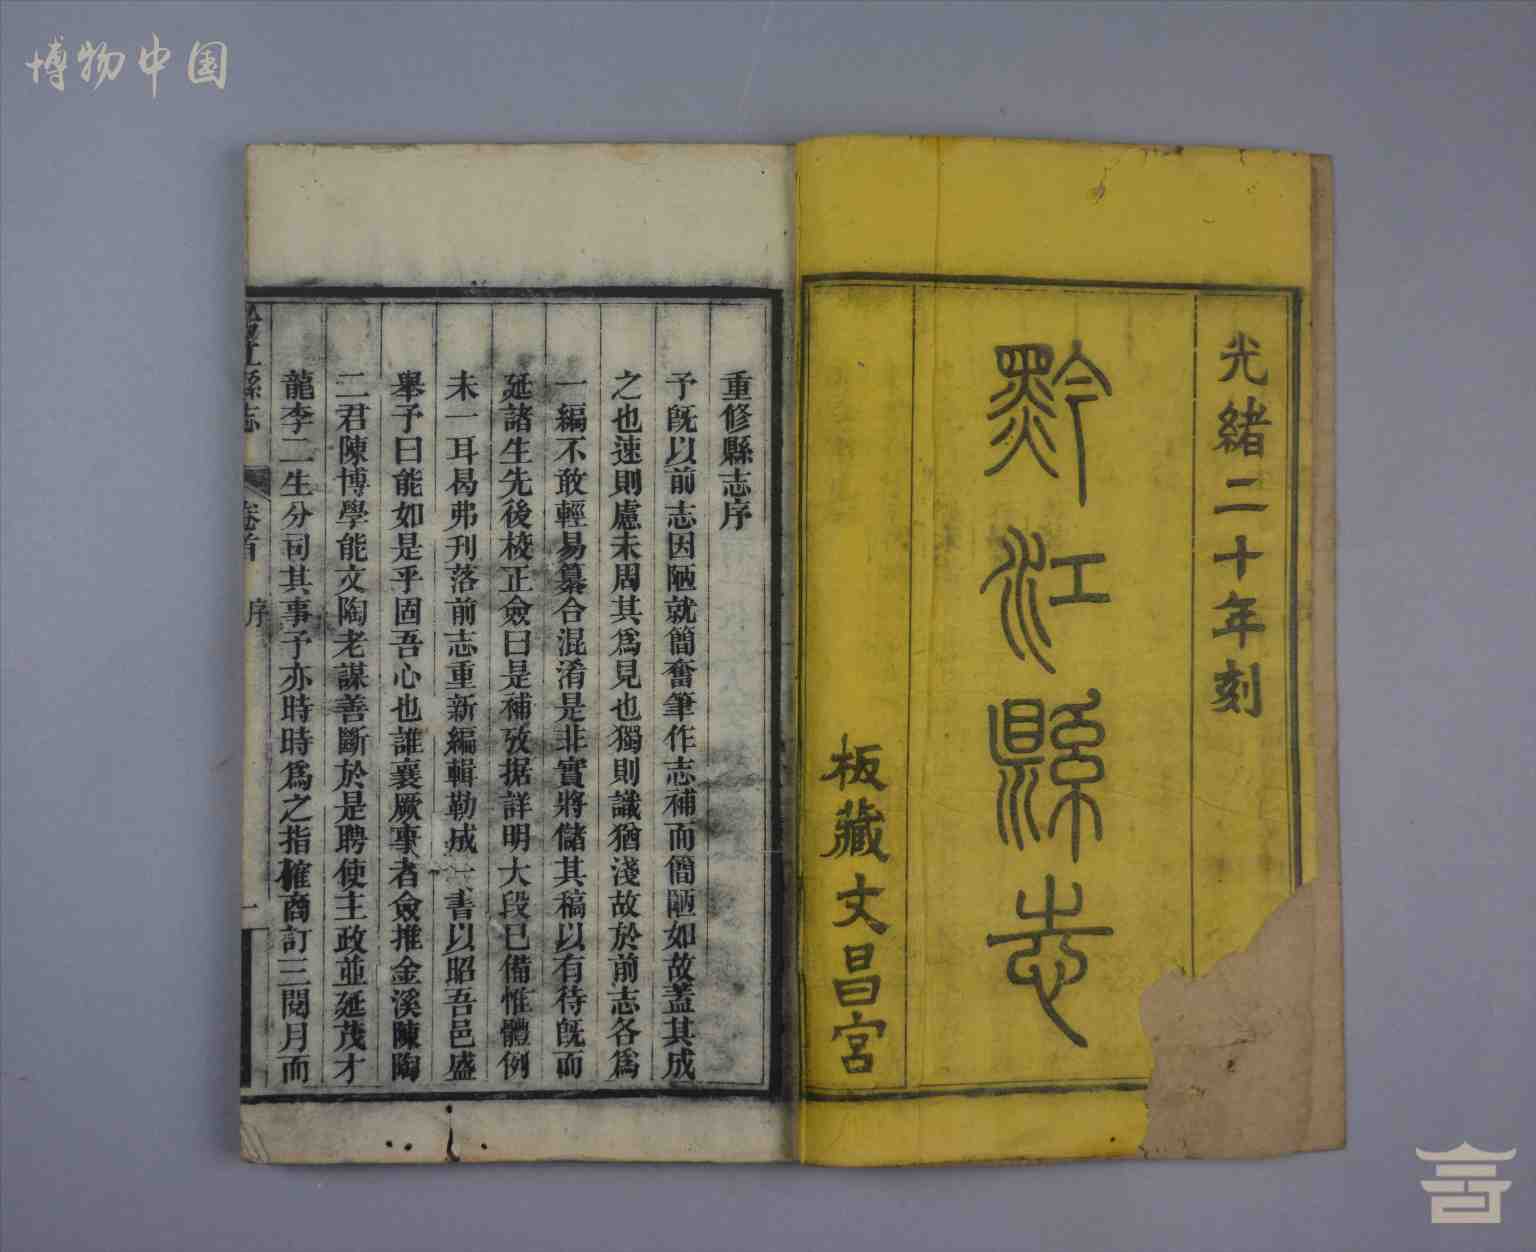 博物中国
光緒二十年刻
黔江縣志
板藏文昌宮
重修縣志序
予旣以前志因陋就簡奮筆作志補而簡陋如故蓋其成
之也速則慮未周其爲見也獨則識猶淺故於前志各爲
一編不敢輕易纂合混淆是非實將儲其稿以有待旣而
延諸生先後校正僉曰是補攷据詳明大段已備惟體例
未一耳曷弗刊落前志重新編輯勒成一書以昭吾邑盛
舉予曰能如是乎固吾心也誰襄厥事者僉推金溪陳陶
二君陳博學能文陶老謀善斷於是聘使主政並延茂才
龍李二生分司其事予亦時時爲之指搉商訂三閱月而
江縣志 卷首 序 一